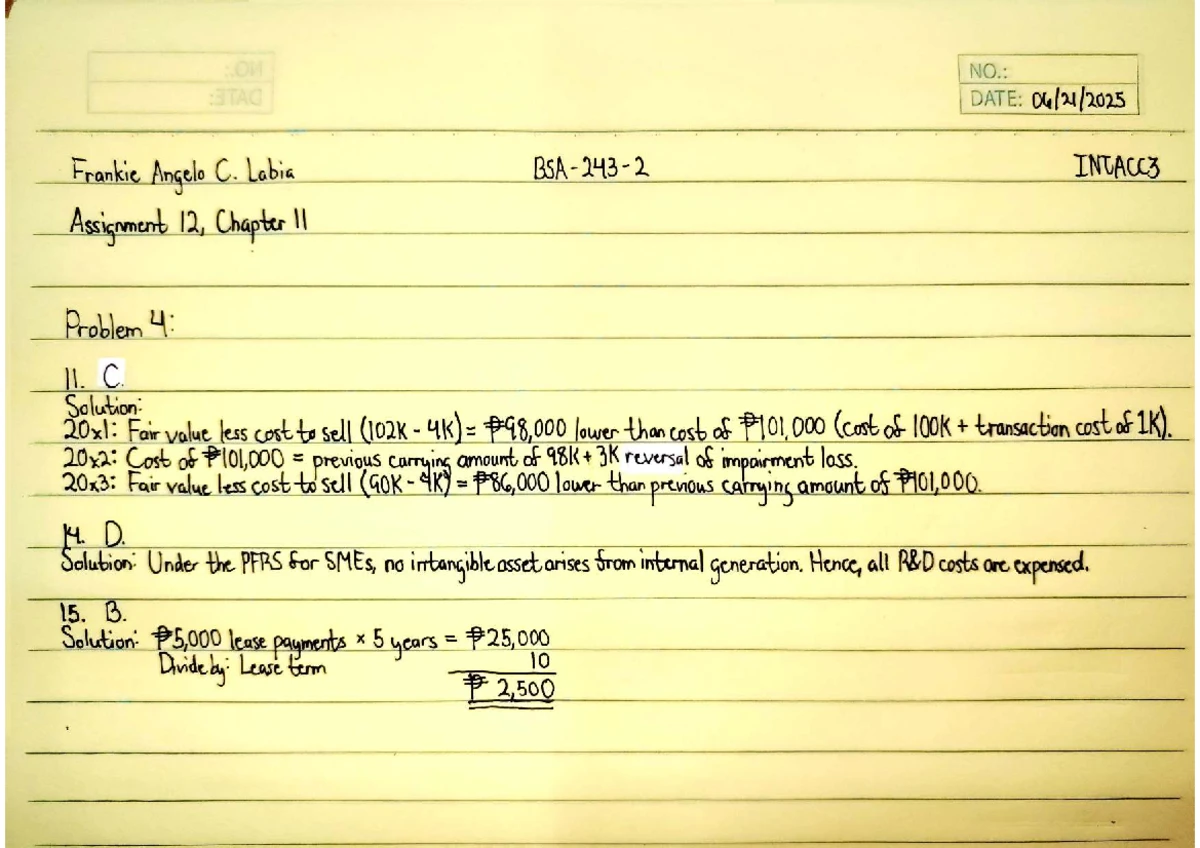 NO.:
DATE: 06/21/2025
Frankie Angelo C. Labia BSA-243-2 INTACC3
Assignment 12, Chapter 11
Problem 4:
11. C.
Solution:
20x1: Fair value less cost to sell (102K - 4K) = ₱98,000 lower than cost of ₱101,000 (cost of 100K + transaction cost of 1K).
20x2: Cost of ₱101,000 = previous carrying amount of 98K + 3K reversal of impairment loss.
20x3: Fair value less cost to sell (90K - 4K) = ₱86,000 lower than previous carrying amount of ₱101,000.
14. D.
Solution: Under the PFRS for SMEs, no intangible asset arises from internal generation. Hence, all R&D costs are expensed.
15. B.
Solution: ₱5,000 lease payments × 5 years = ₱25,000
Divide by: Lease term 10
₱ 2,500